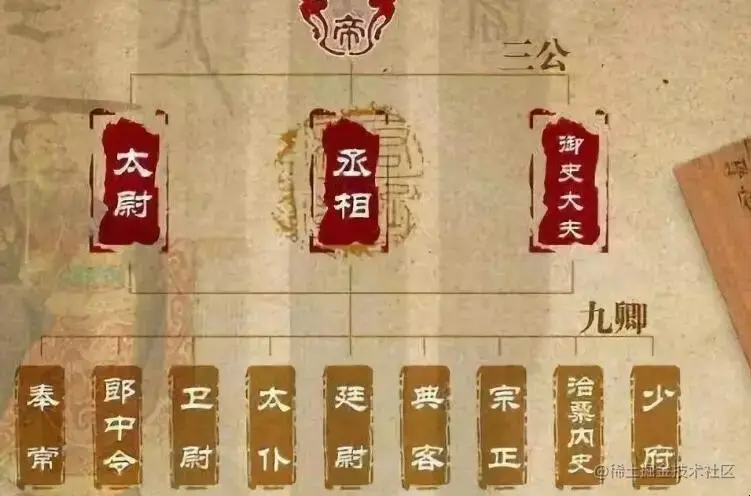 帝
三公
太尉
丞相
御史大夫
九卿
奉常
郎中令
卫尉
太仆
廷尉
典客
宗正
治粟内史
少府
@稀土掘金技术社区